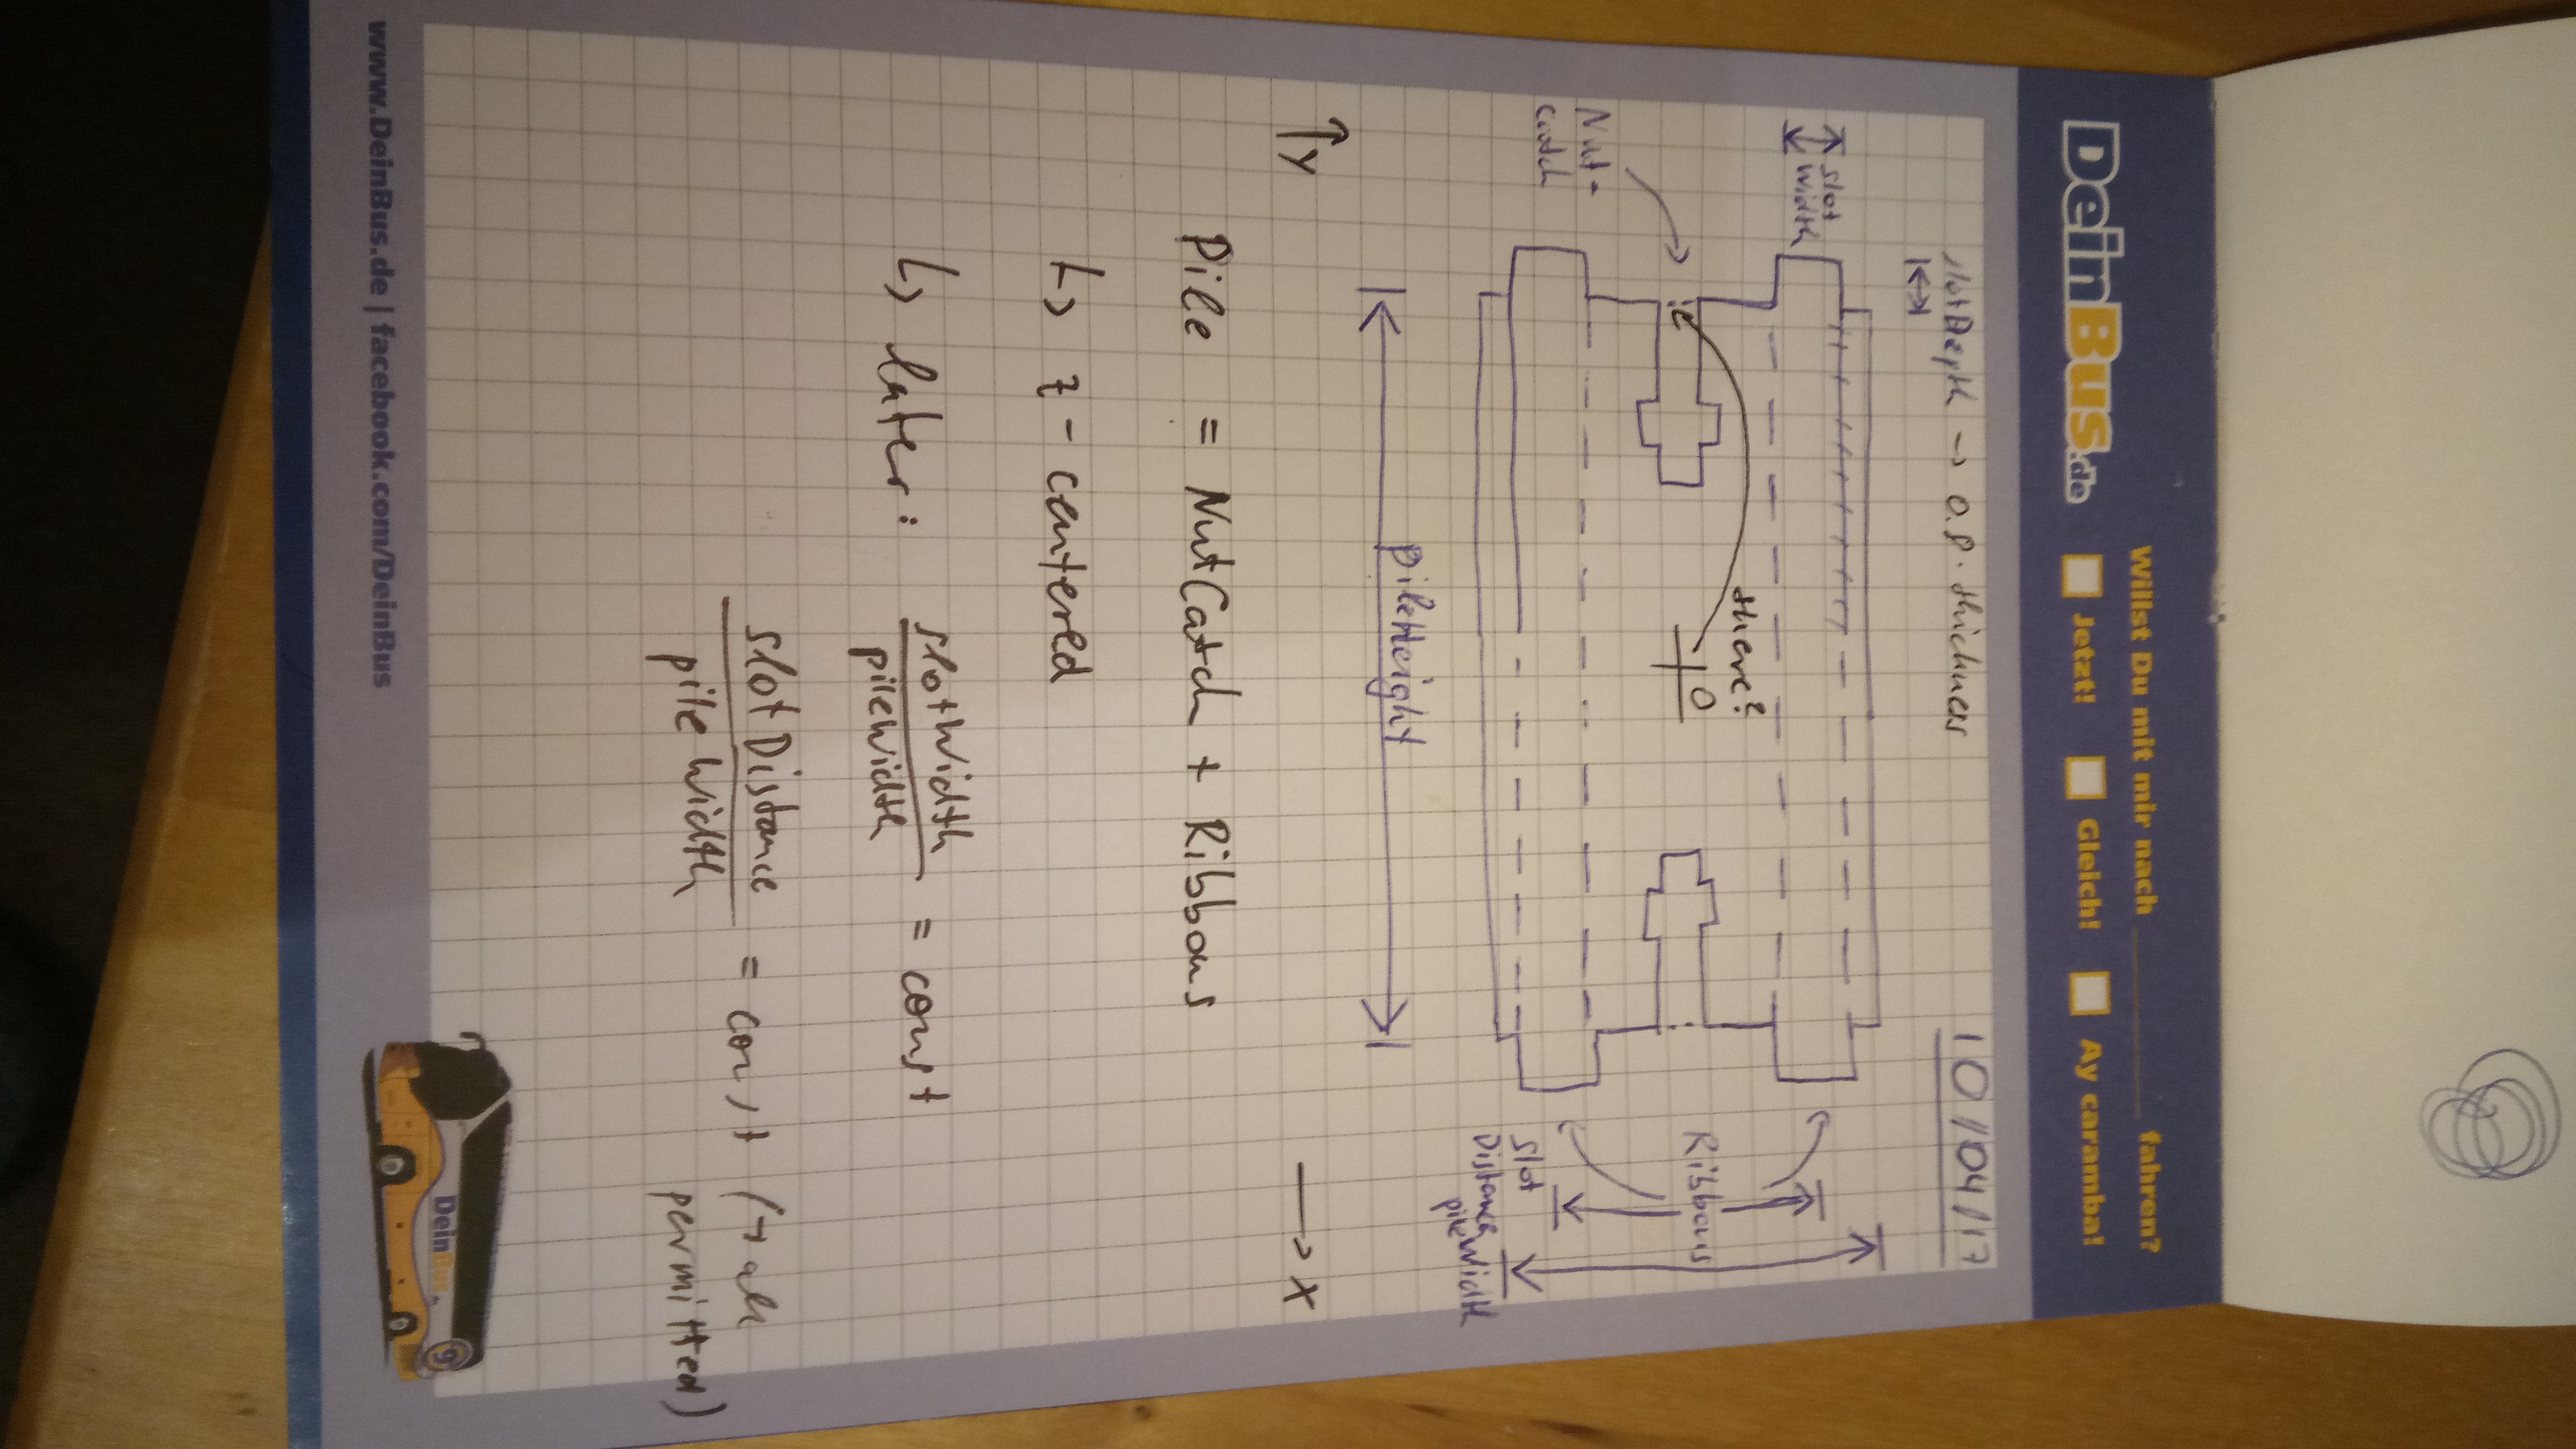 DeinBus.de
Willst Du mit mir nach ______ fahren?
Jetzt! Gleich! Ay caramba!
10/04/17
slotDepth → 0.8 · thickness
slot
width
Nut-
catch
there?
0
Ribbons
slot
Distance
pileWidth
pileHeight
↑ Y
→ X
Pile = NutCatch + Ribbons
↳ z-centered
↳ later:
slotWidth
pileWidth
= const
slotDistance
pileWidth
= const
permitted)
DeinBus.
www.DeinBus.de | facebook.com/DeinBus